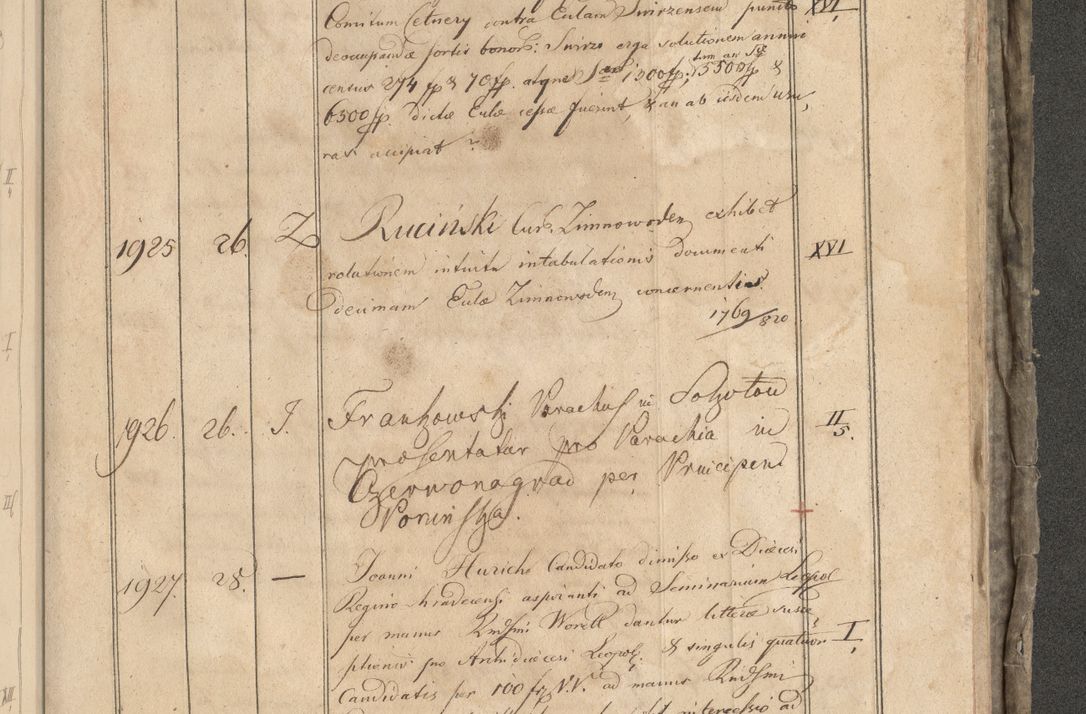 Comitum Cetnery contra Eulam Swirzensem puncto XVI.
deoccupandæ sortis bonor: Swirz erga solutionem annui
census 274 fp & 70 fp. atque 1300 fp, 5500 fp &
6500 fp. dictæ Eulæ cessæ fuerint, & an ab iisdem usu,
ras accipiat ?
1925 26. Z Ruciński Cur. Zimnowoden exhibet
relationem intuitu intabulationis documenti XVI
decimam Eulæ Zimnowoden concernentis.
1769/820
1926. 26. J. Frankowski Parachus in Potok
præsentatur pro Parachia in II/5.
Czerwonogrod per Principem
Poninski.
1927. 28. — Joanni Hurich Candidato dimisso ex Dioecesi
Regino hradecensi aspiranti ad Seminarium Leopol
per manus Rndssmi Worell dantur litteræ susce
ptionis pro Archidioecesi Leopol. & singulis quatuor I,
Candidatis per 100 fr V.V. ad manus Rndssmi
intercessio ad